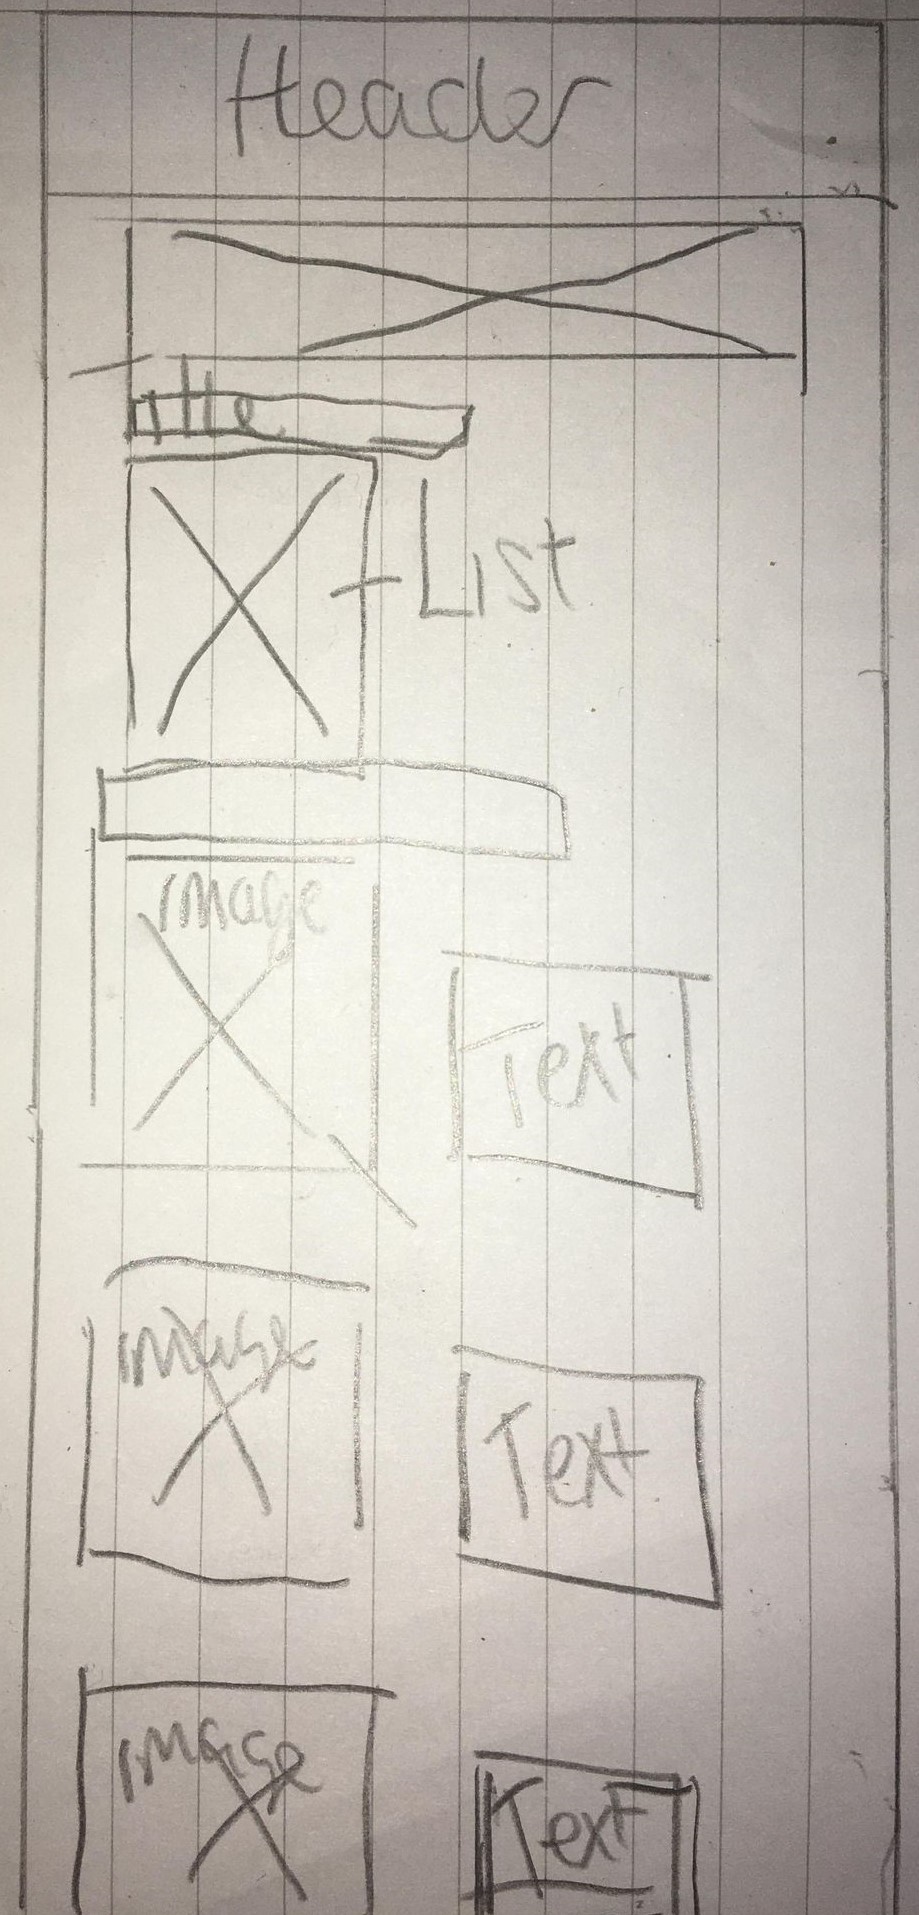 Header
Title
List
image
Text
image
Text
image
Text